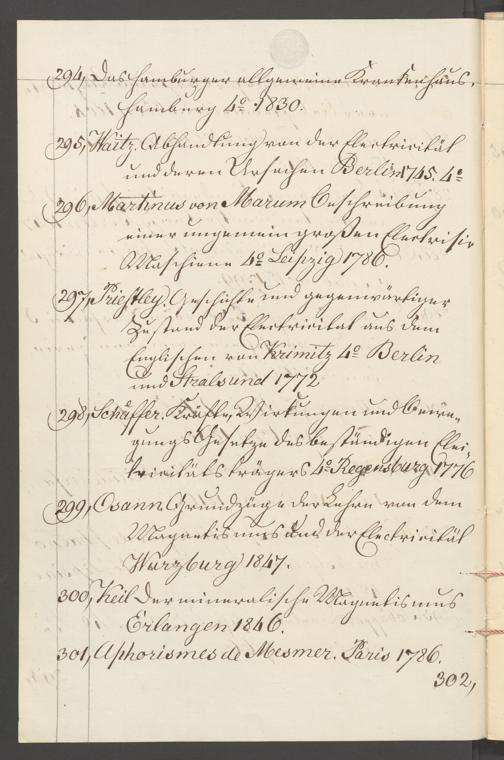 294, Das Hamburger allgemeine Krankenhaus.
Hamburg 4º 1830.
295, Waitz. Abhandlung von der Electricität
und deren Ursachen Berlin 1745. 4º
296, Martinus von Marum Beschreibung
einer ungemein großen Electrisir
Maschiene 4º Leipzig 1786.
297, Priestley. Geschichte und gegenwärtiger
Zustand der Electricitat aus dem
Englischen von Krünitz 4º Berlin
und Stralsund 1772
298, Schäffer. Kräfte, Wirkungen und Bewe-
gungs Gesetze des beständigen Elec-
tricitätsträgers 4º Regensburg 1776
299, Osann. Grundzüge der Lehre von dem
Magnetismus und der Electricität
Würzburg 1847.
300, Keil Der mineralische Magnetismus
Erlangen 1846.
301, Aphorismes de Mesmer. Paris 1786.
302,